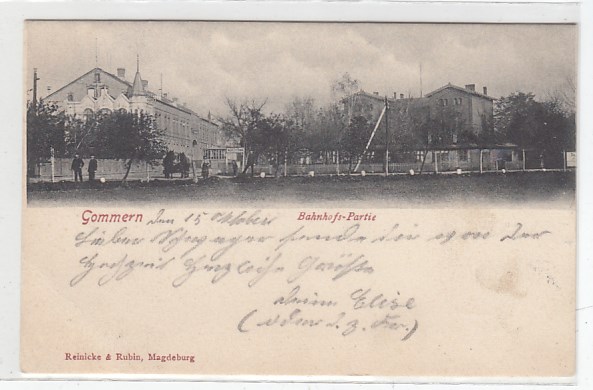 Gommern den 15 Oktober Bahnhofs-Partie
Lieber Schwager sende dir von der
Hochzeit Herzliche Grüße
deine Elise
Reinicke & Rubin, Magdeburg